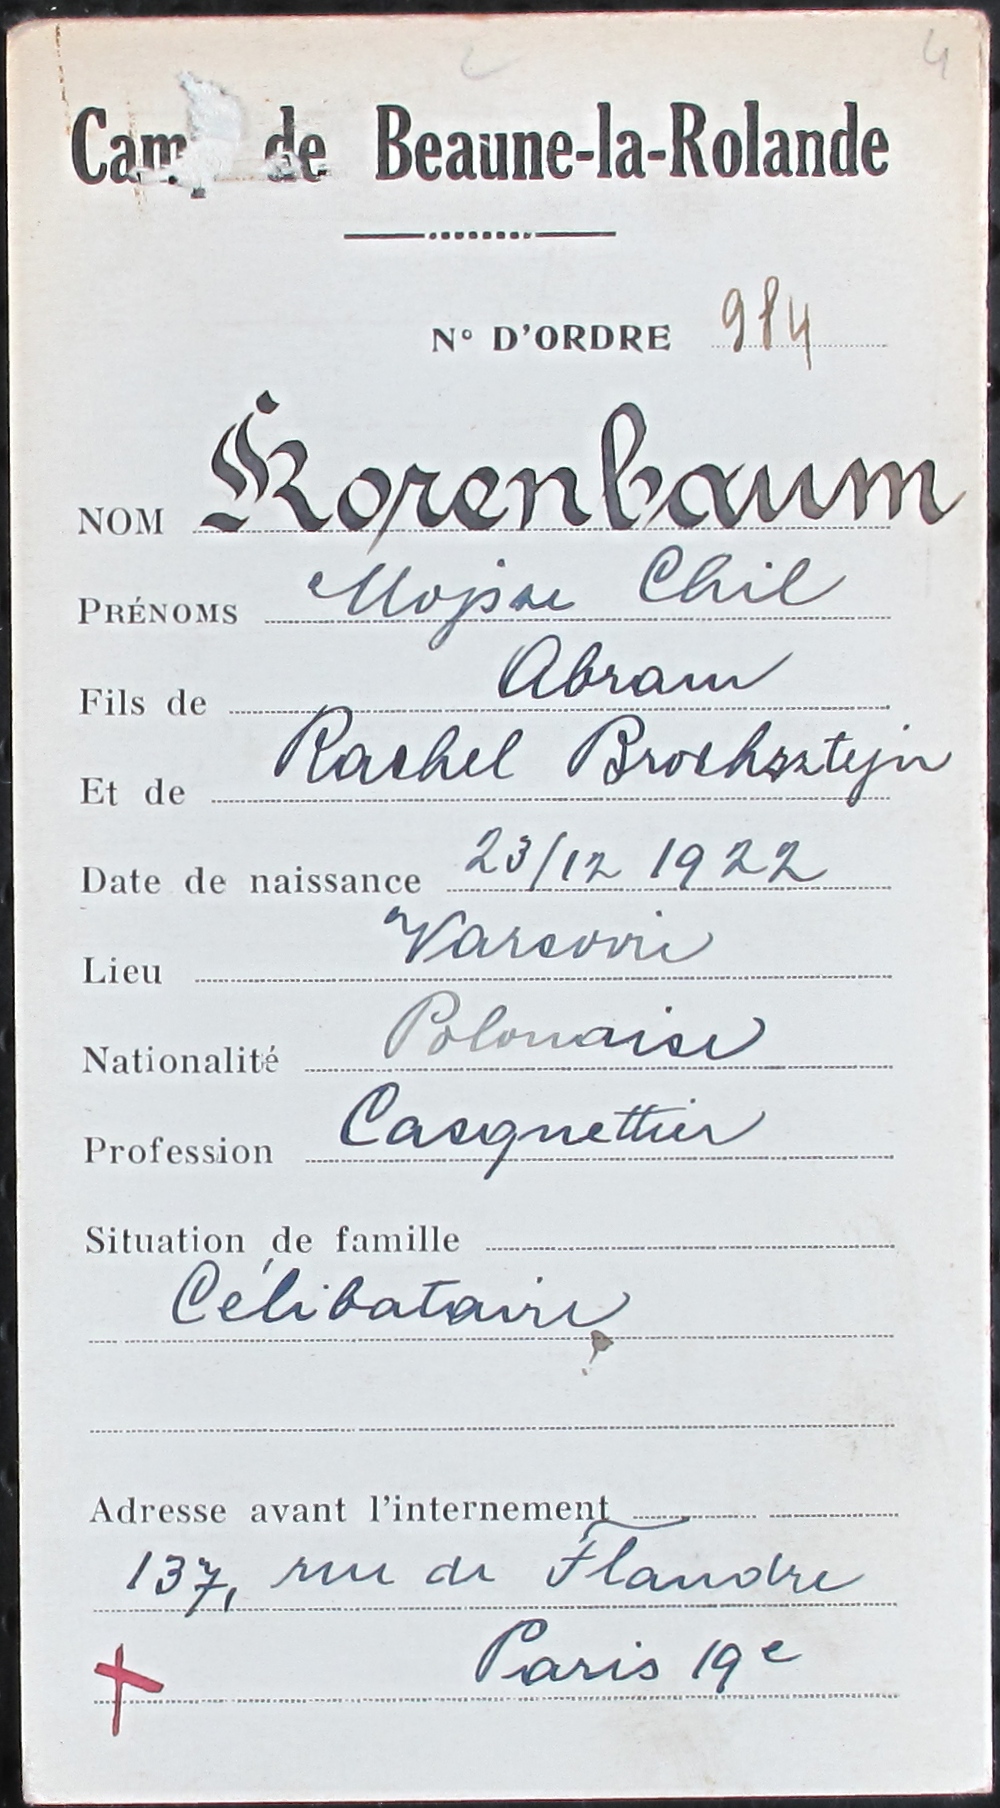 4
Camp de Beaune-la-Rolande
N° D'ORDRE 984
NOM Korenbaum
PRÉNOMS Mojsze Chil
Fils de Abram
Et de Rachel Brochsztejn
Date de naissance 23/12 1922
Lieu Varsovie
Nationalité Polonaise
Profession Casquettier
Situation de famille
Célibataire
Adresse avant l'internement
137, rue de Flandre
Paris 19e